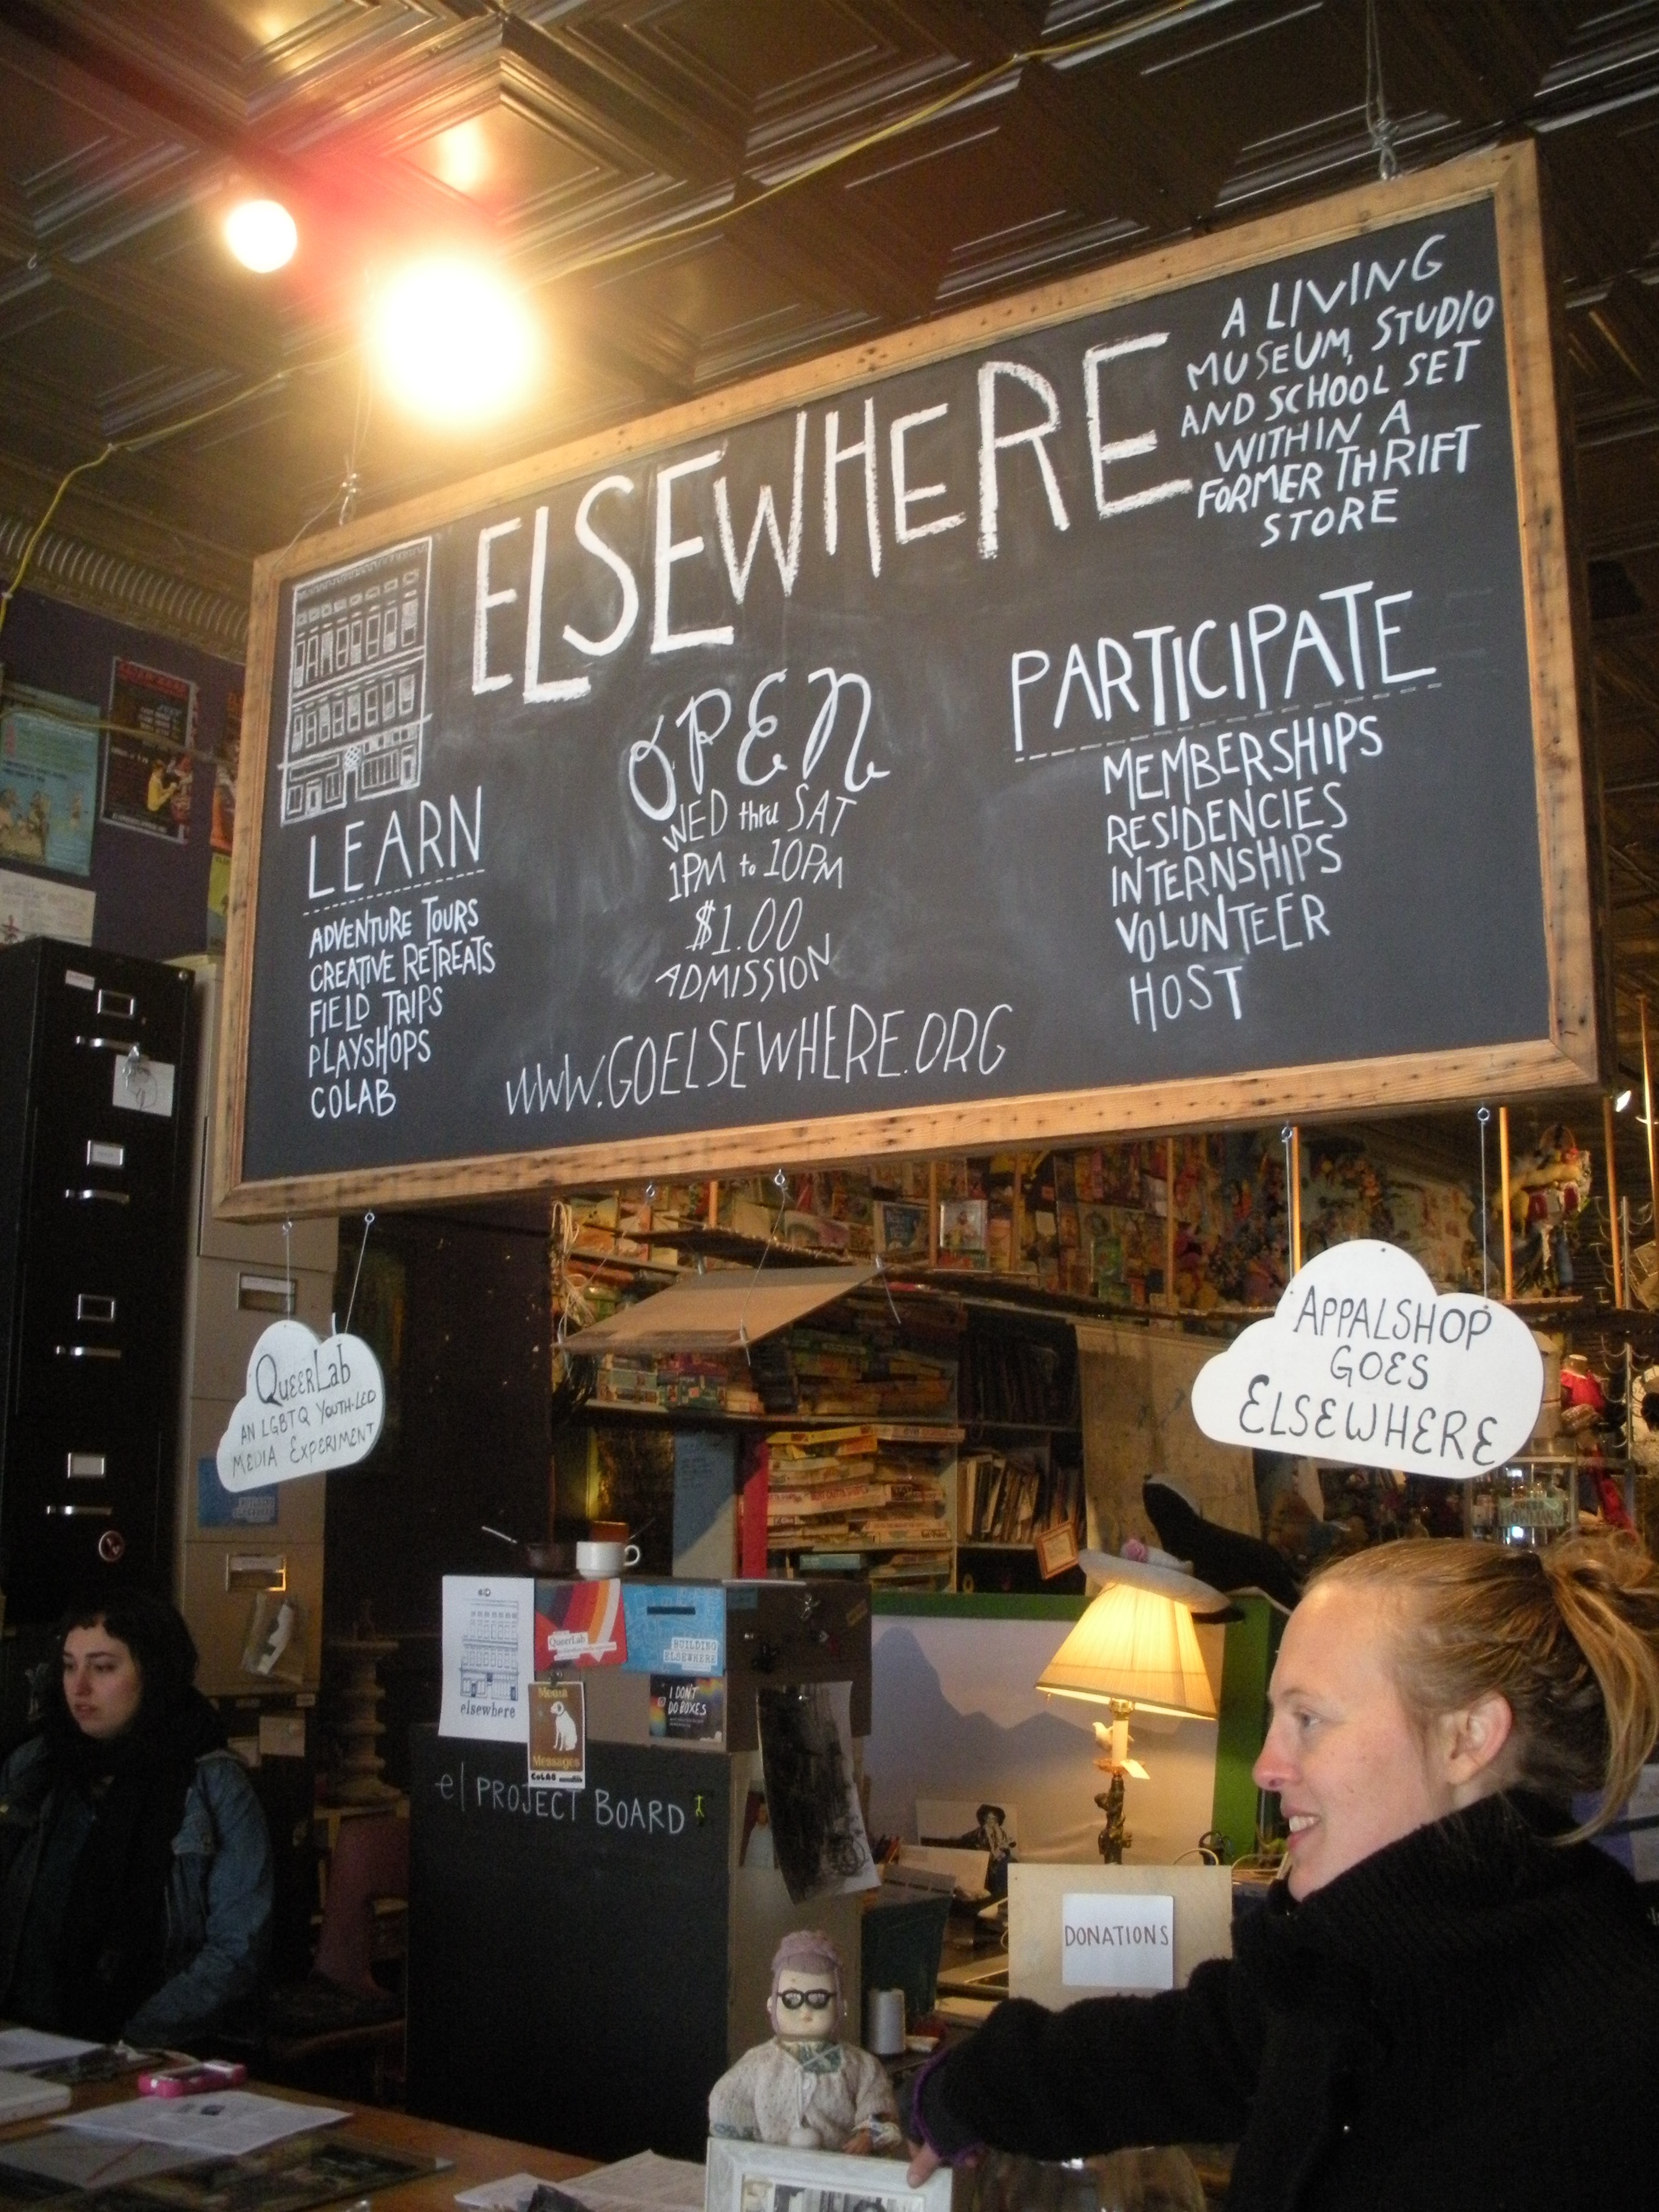 ELSEWHERE
A LIVING
MUSEUM, STUDIO
AND SCHOOL SET
WITHIN A
FORMER THRIFT
STORE
LEARN
ADVENTURE TOURS
CREATIVE RETREATS
FIELD TRIPS
PLAYSHOPS
COLAB
OPEN
WED thru SAT
1PM to 10PM
$1.00
ADMISSION
WWW.GOELSEWHERE.ORG
PARTICIPATE
MEMBERSHIPS
RESIDENCIES
INTERNSHIPS
VOLUNTEER
HOST
QueerLab
AN LGBTQ YOUTH-LED
MEDIA EXPERIMENT
APPALSHOP
GOES
ELSEWHERE
elsewhere
QueerLab
BUILDING
ELSEWHERE
I DON'T
DO BOXES
Messages
CoLAB
el PROJECT BOARD
DONATIONS